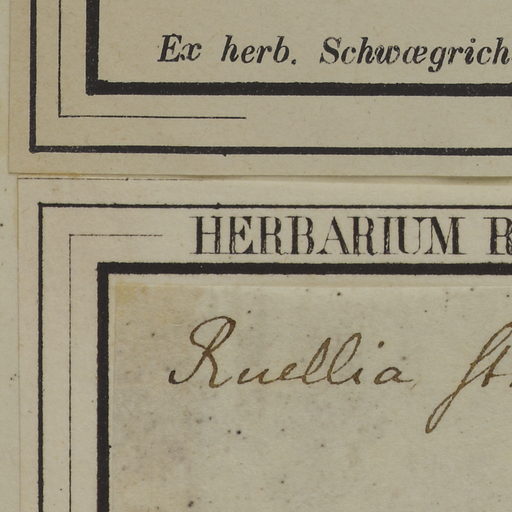 Ex herb. Schwægrich
HERBARIUM
Ruellia